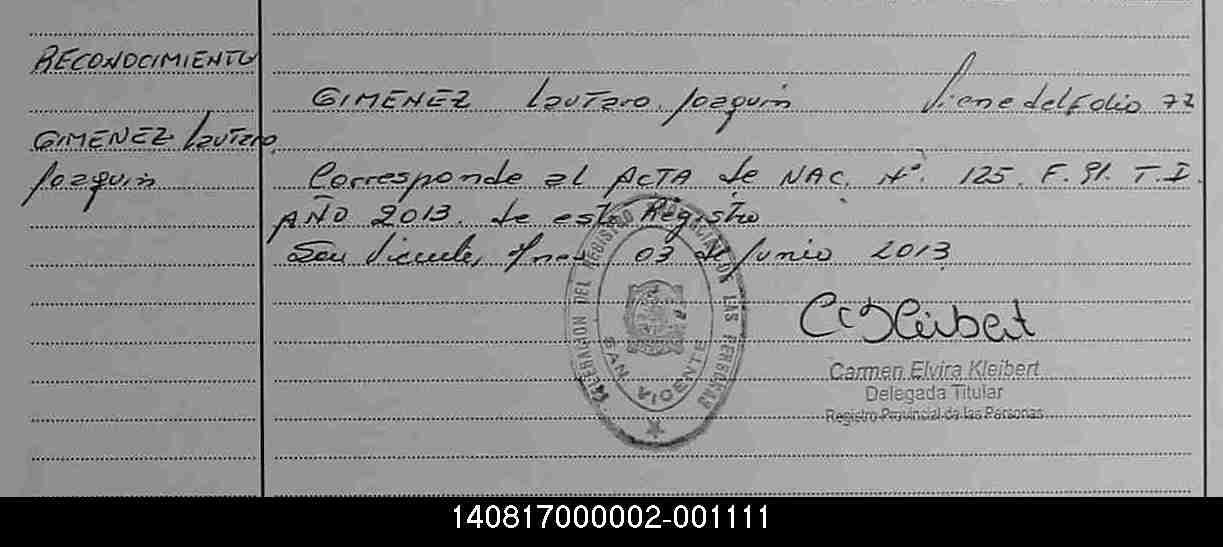 RECONOCIMIENTO
GIMENEZ Lautaro Joaquin
GIMENEZ Lautaro Joaquin Viene del Folio 77
Corresponde al ACTA de NAC. Nº. 125. F. 91. T. I.
AÑO 2013. de este Registro
San Vicente, Mnes. 03 de Junio 2013
DELEGACION DEL REGISTRO PROVINCIAL DE LAS PERSONAS
SAN VICENTE
C Kleibert
Carmen Elvira Kleibert
Delegada Titular
Registro Provincial de las Personas
140817000002-001111